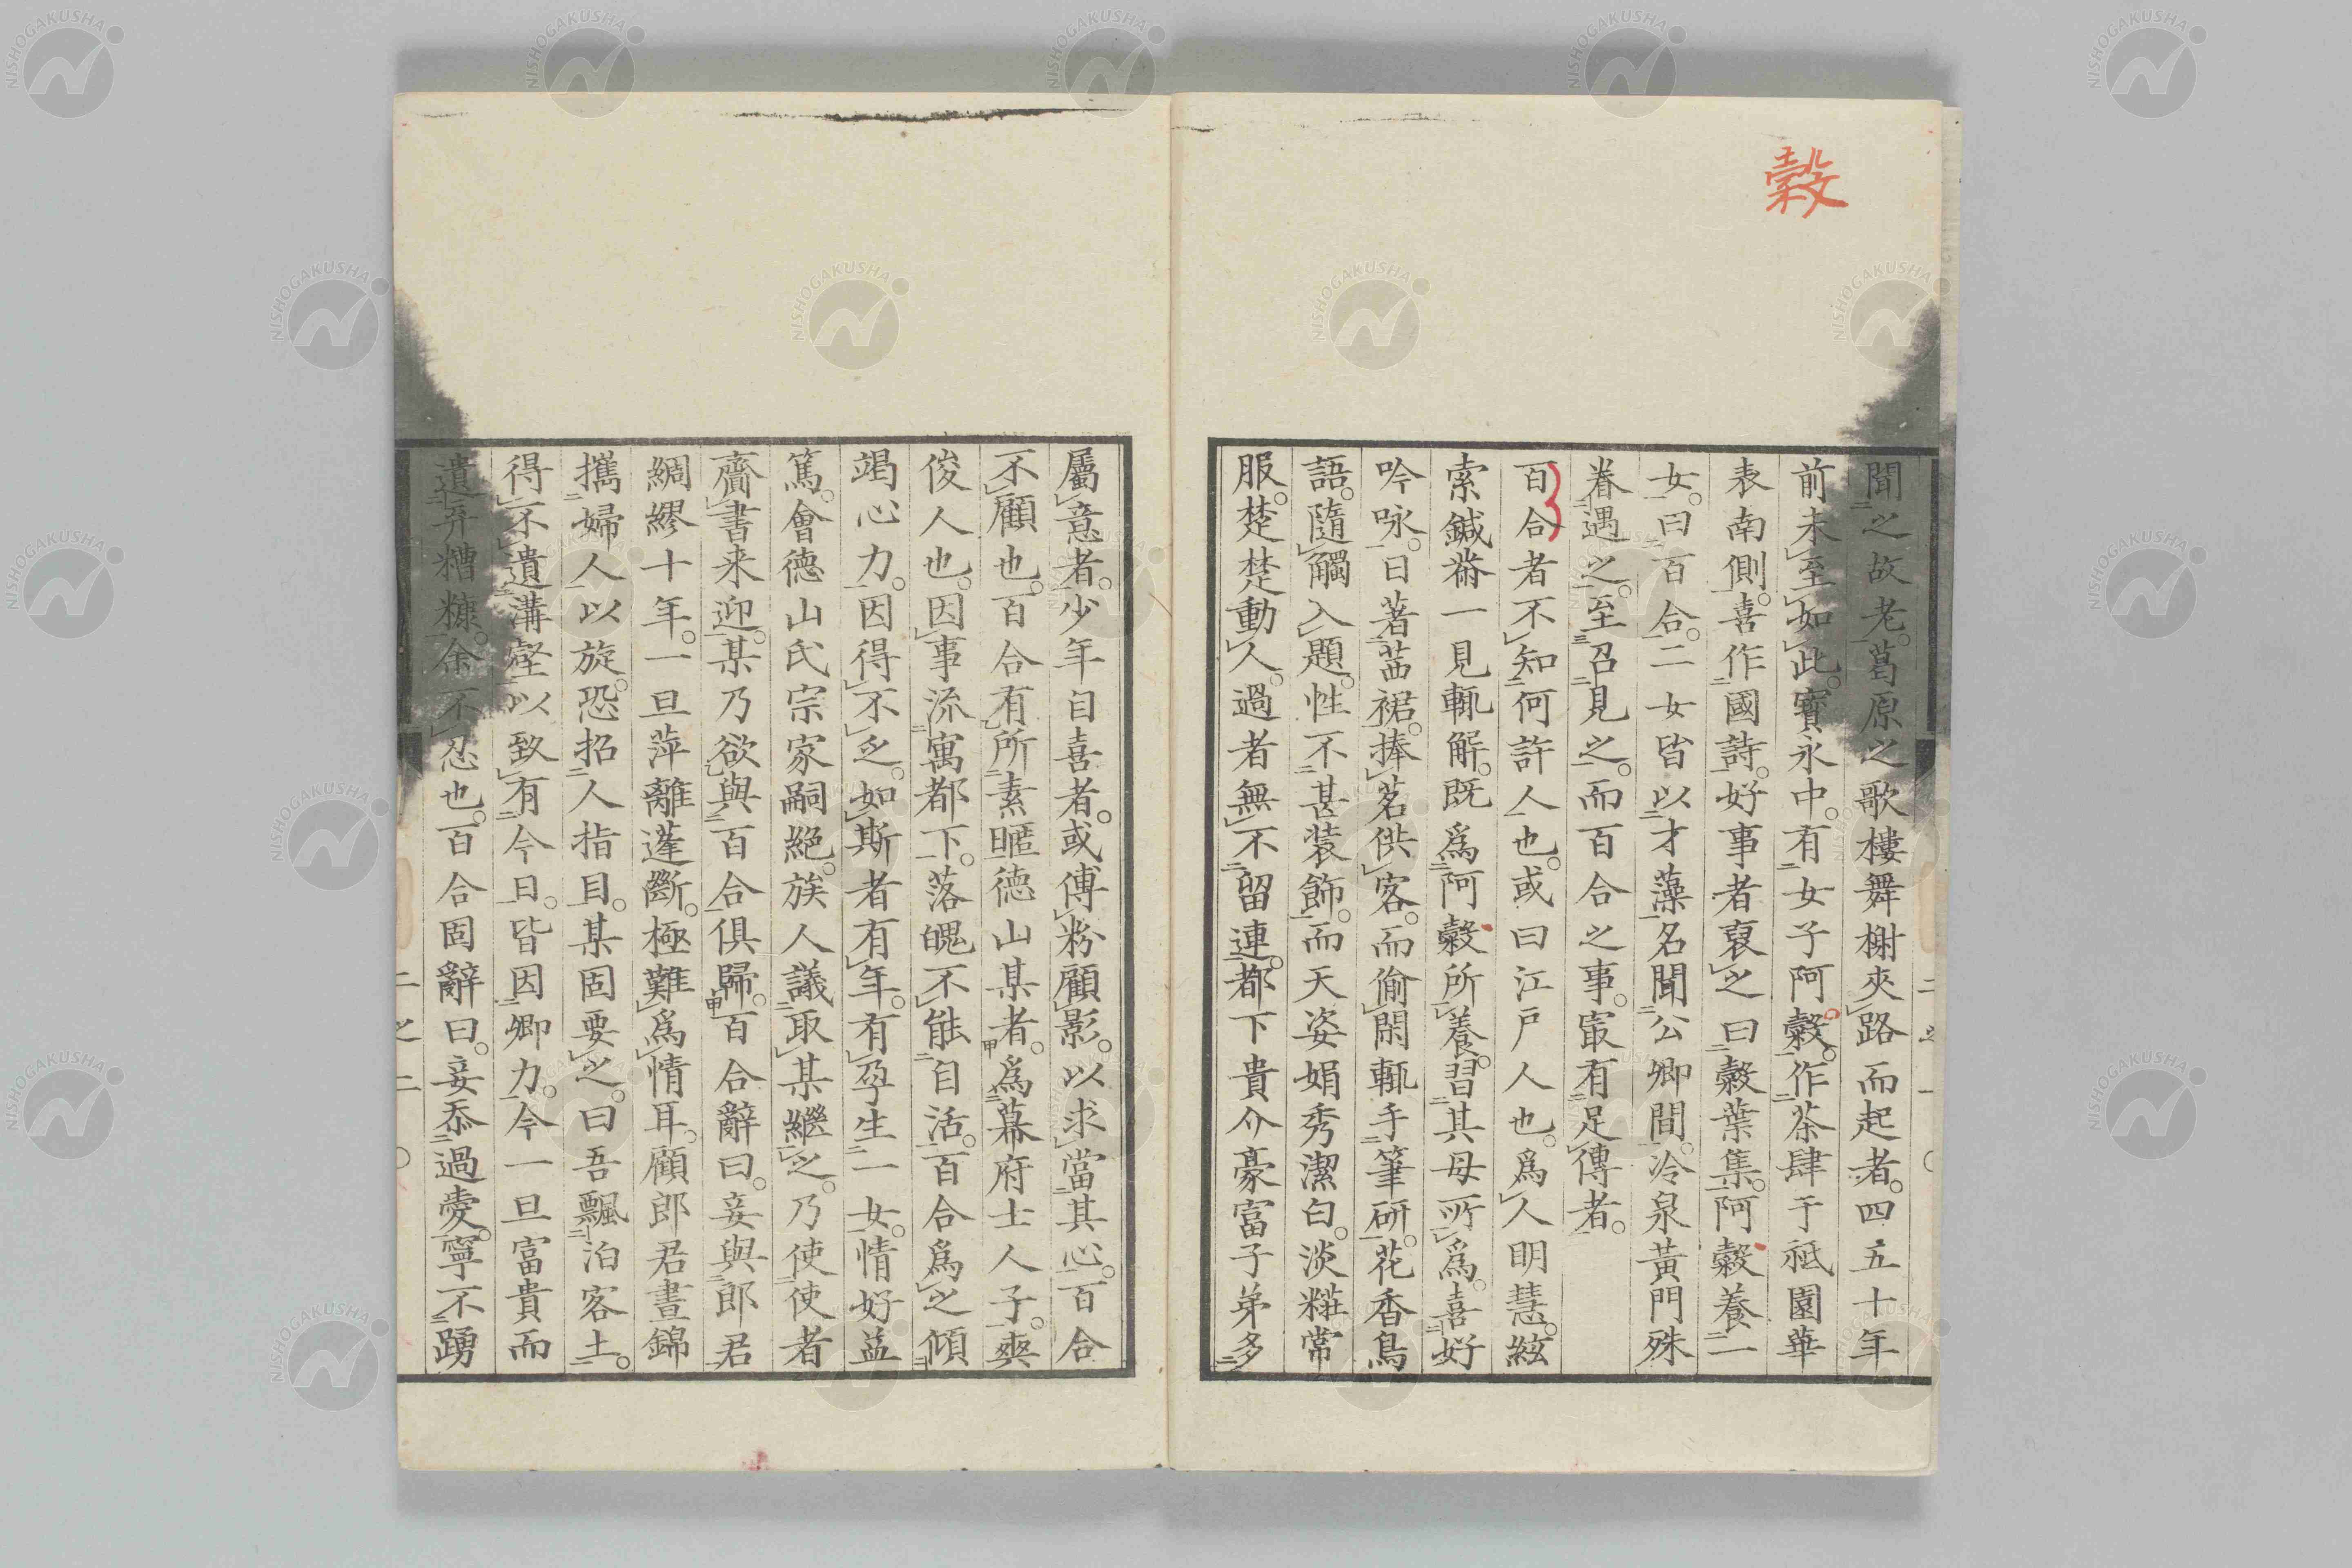 糓
聞之故老。葛原之歌樓舞榭夾路而起者。四五十年
前未至如此。寳永中。有女子阿糓。作茶肆于祗園華
表南側。喜作國詩。好事者裒之曰糓葉集。阿糓養一
女。曰百合。二女皆以才藻名聞公卿間。冷泉黃門殊
眷遇之。至召見之。而百合之事。㝡有足傳者。
百合者不知何許人也。或曰江戸人也。爲人明慧。絃
索鍼黹一見輒解。既爲阿糓所養。習其母所爲。喜好
吟咏。日著茜裙。捧茗供客。而偷閑輒手筆研。花香鳥
語。隨觸入題。性不甚装飾。而天姿娟秀潔白。淡糚常
服。楚楚動人。過者無不留連。都下貴介豪富子弟多
屬意者。少年自喜者。或傅粉顧影。以求當其心。百合
不顧也。百合有所素暱德山某者。爲幕府士人子。爽
俊人也。因事流寓都下。落魄不能自活。百合爲之傾
竭心力。因得不乏。如斯者有年。有孕生一女。情好益
篤。會德山氏宗家嗣絕。族人議取某繼之。乃使使者
齎書来迎。某乃欲與百合俱歸。百合辭曰。妾與郎君
綢繆十年。一旦萍離蓬斷。極難爲情耳。顧郎君晝錦
攜婦人以旋。恐招人指目。某固要之。曰吾飄泊客土。
得不遺溝壑以致有今日。皆因卿力。今一旦富貴而
遺弃糟糠。余不忍也。百合固辭曰。妾忝過愛。寧不踴
二之二